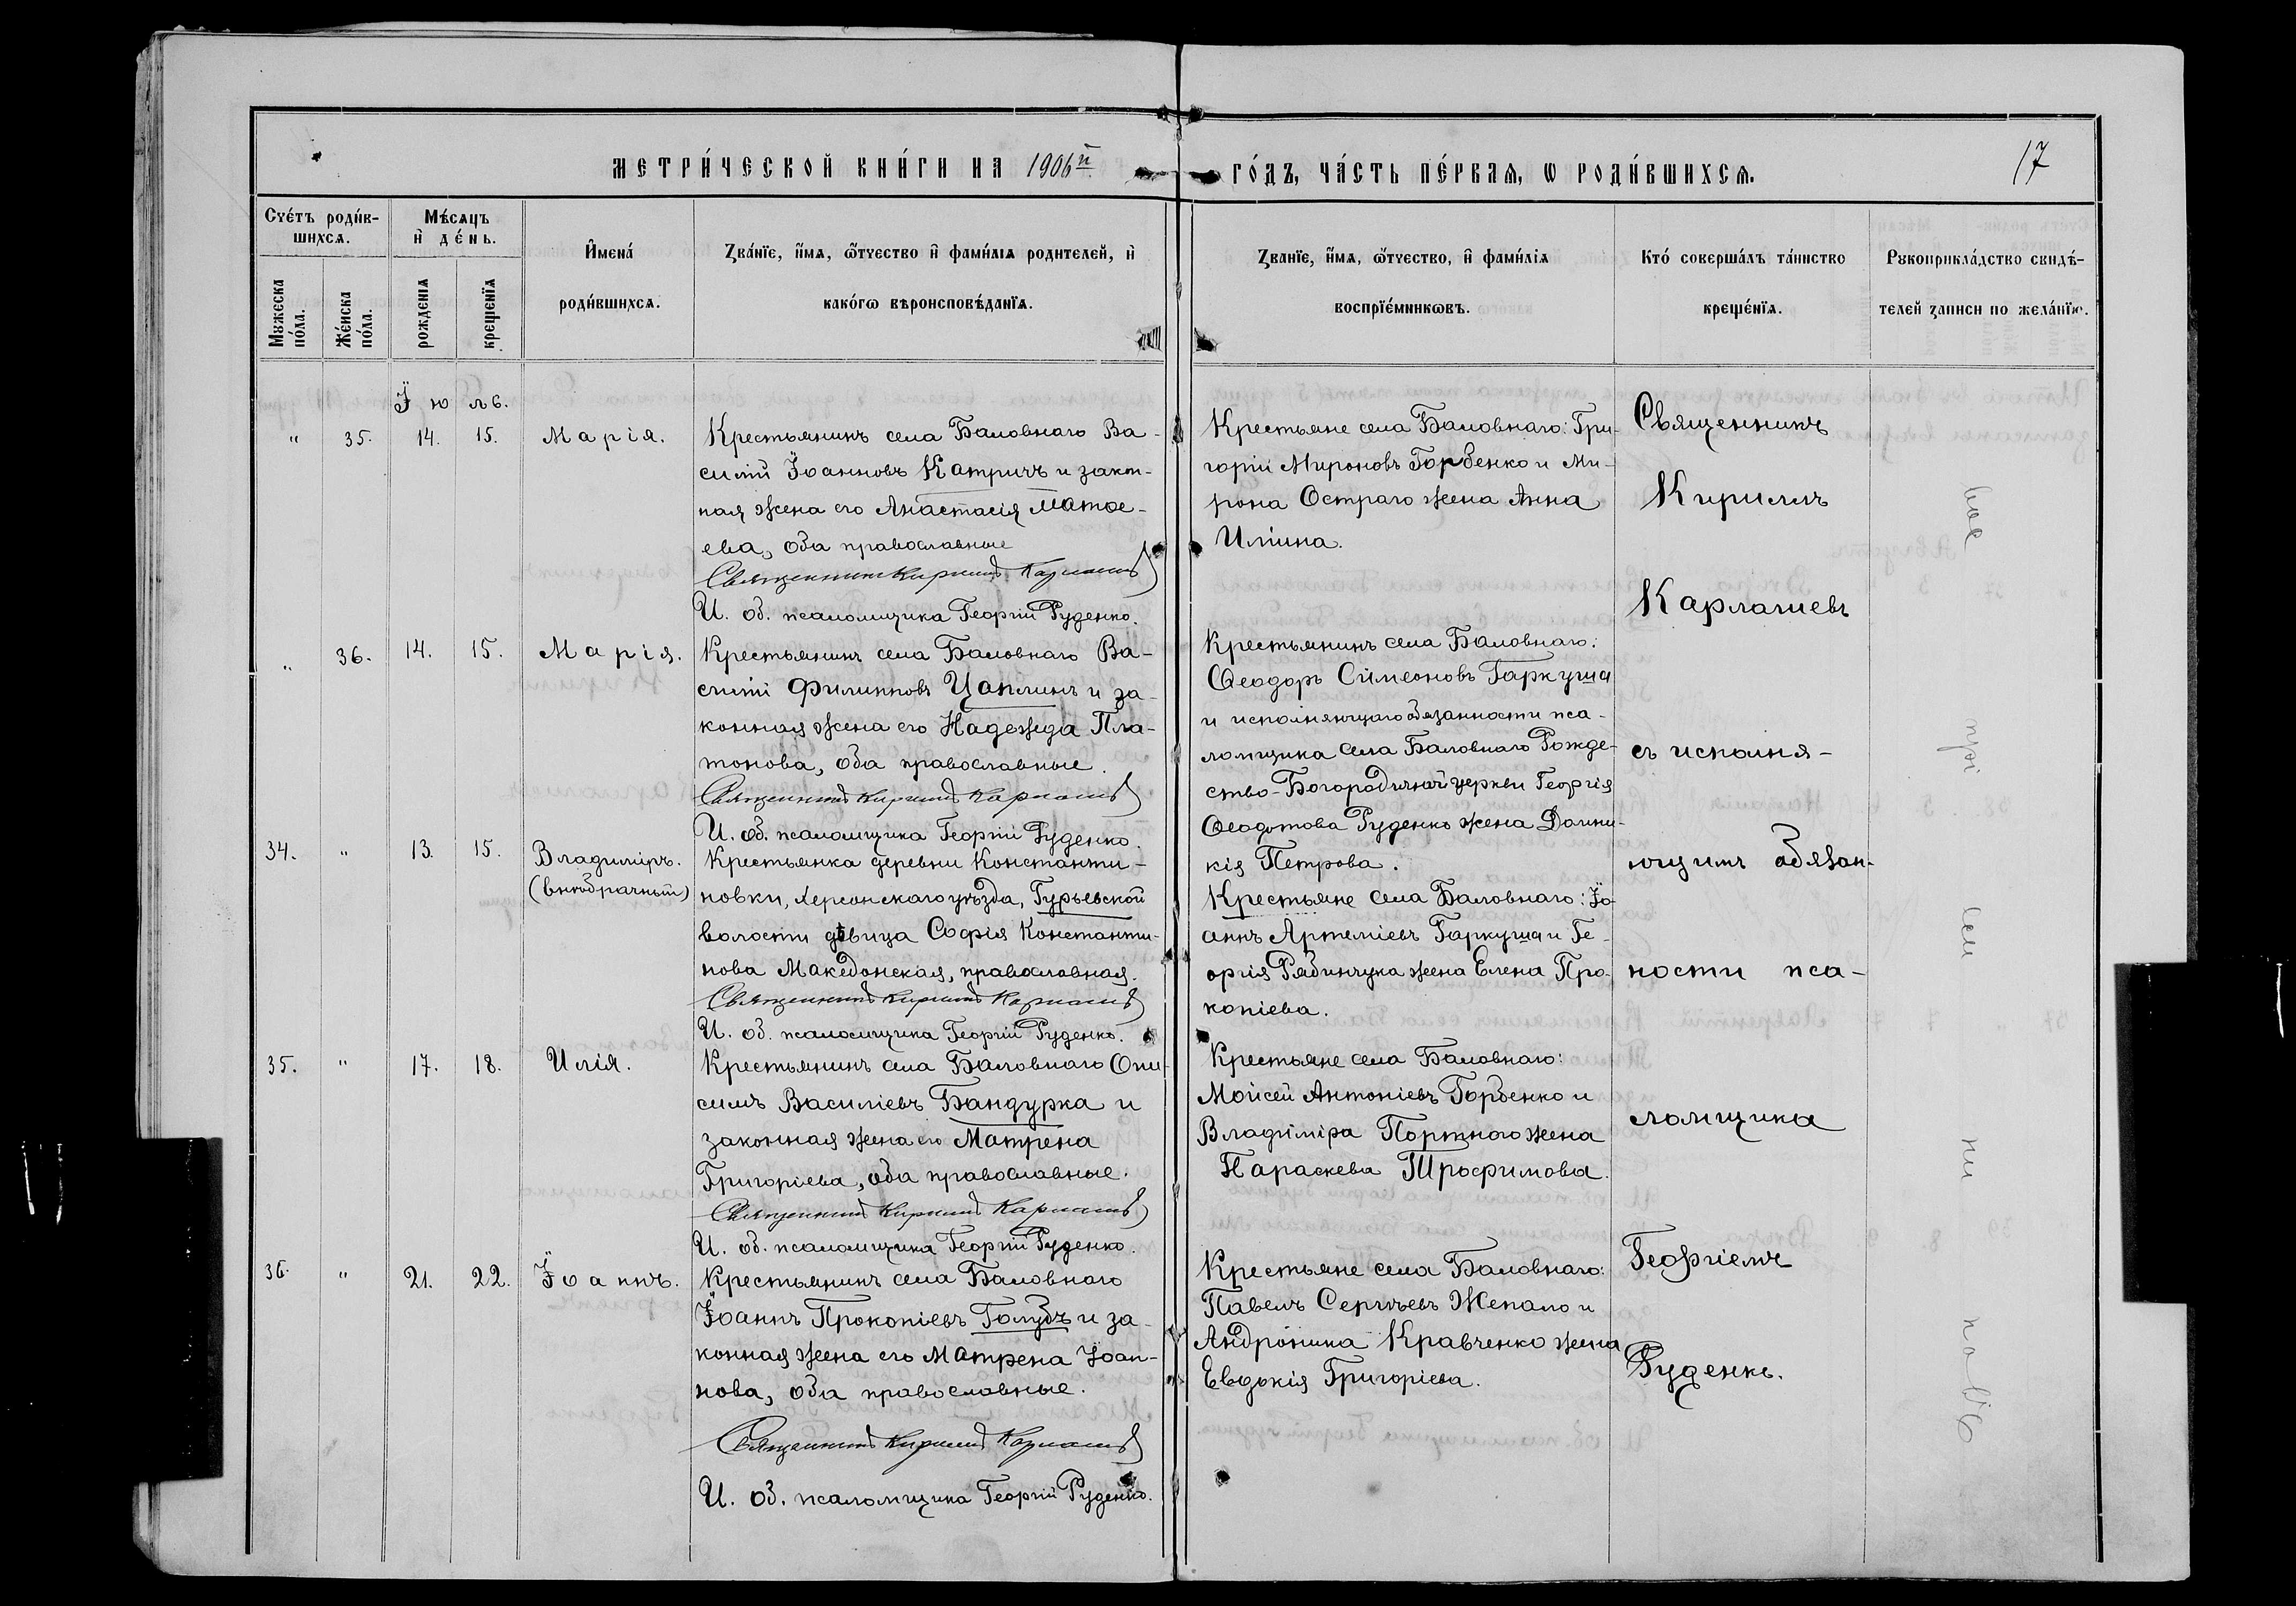 МЕТРИ́ЧЕСКОЙ КНИ́ГИ НА 1906й
ГО́ДЪ, ЧА́СТЬ ПЕ́РВАѦ, Ѡ РОДИ́ВШИХСѦ.
17
Счéтъ роди́в-
шихсѧ.
Мѣ́сѧцъ
и҆ де́нь.
Мꙋжеска
по́ла.
Же́нска
по́ла.
рожденїѧ
крещенїѧ
И҆мена́
роди́вшихсѧ.
Зва́нїе, и҆́мѧ, ѻ҆́тчество и҆ фами́лїѧ родителей, и҆
како́гѡ вѣроисповѣ́данїѧ.
Званїе, и҆́мѧ, ѻ҆́тчество, и҆ фами́лїѧ
воспрїе́мникѡвъ.
Кто́ соверша́лъ та́инство
креще́нїѧ.
Рꙋкоприкла́дство свидѣ́-
телей записи по жела́нїю.
Їюль.
" 35. 14. 15. Марія.
Крестьянинъ села Баловнаго Ва-
силій Іоанновъ Катричъ и закон-
ная жена его Анастасія Матѳе-
ева, оба православные
Священникъ Кириллъ Карлашевъ
И. об. псаломщика Георгій Руденко.
Крестьяне села Баловнаго: Гри-
горій Мироновъ Горбенко и Ми-
рона Остраго жена Анна
Иліина.
" 36. 14. 15. Марія.
Крестьянинъ села Баловнаго Ва-
силій Филипповъ Цаплинъ и за-
конная жена его Надежда Пла-
тонова, оба православные.
Священникъ Кириллъ Карлашевъ
И. об. псаломщика Георгій Руденко.
Крестьянинъ села Баловнаго:
Ѳеодоръ Сімеоновъ Гаркуша
и исполняющаго обязанности пса-
ломщика села Баловнаго Рожде-
ство-Богородичной церкви Георгія
Ѳеодотова Руденко жена Домни-
кія Петрова.
34. " 13. 15. Владиміръ.
(внѣбрачный)
Крестьянка деревни Константи-
новки, Херсонскаго уѣзда, Гурьевской
волости дѣвица Софія Константи-
нова Македонская, православная.
Священникъ Кириллъ Карлашевъ
И. об. псаломщика Георгій Руденко.
Крестьяне села Баловнаго: Іо-
аннъ Артеміевъ Гаркуша и Ге-
оргія Рябинчука жена Елена Про-
копіева.
35. " 17. 18. Илія.
Крестьянинъ села Баловнаго Они-
симъ Василіевъ Бандурка и
законная жена его Матрена
Григоріева, оба православные.
Священникъ Кириллъ Карлашевъ
И. об. псаломщика Георгій Руденко.
Крестьяне села Баловнаго:
Моисей Антоніевъ Горбенко и
Владиміра Портного жена
Параскева Трофимова.
36. " 21. 22. Іоаннъ.
Крестьянинъ села Баловнаго
Іоаннъ Прокопіевъ Голубъ и за-
конная жена его Матрена Іоан-
нова, оба православные.
Священникъ Кириллъ Карлашевъ
И. об. псаломщика Георгій Руденко.
Крестьяне села Баловнаго:
Павелъ Сергѣевъ Жепало и
Андроника Кравченко жена
Евдокія Григоріева.
Священникъ
Кириллъ
Карлашевъ
съ исполня-
ющимъ обязан-
ности пса-
ломщика
Георгіемъ
Руденко.